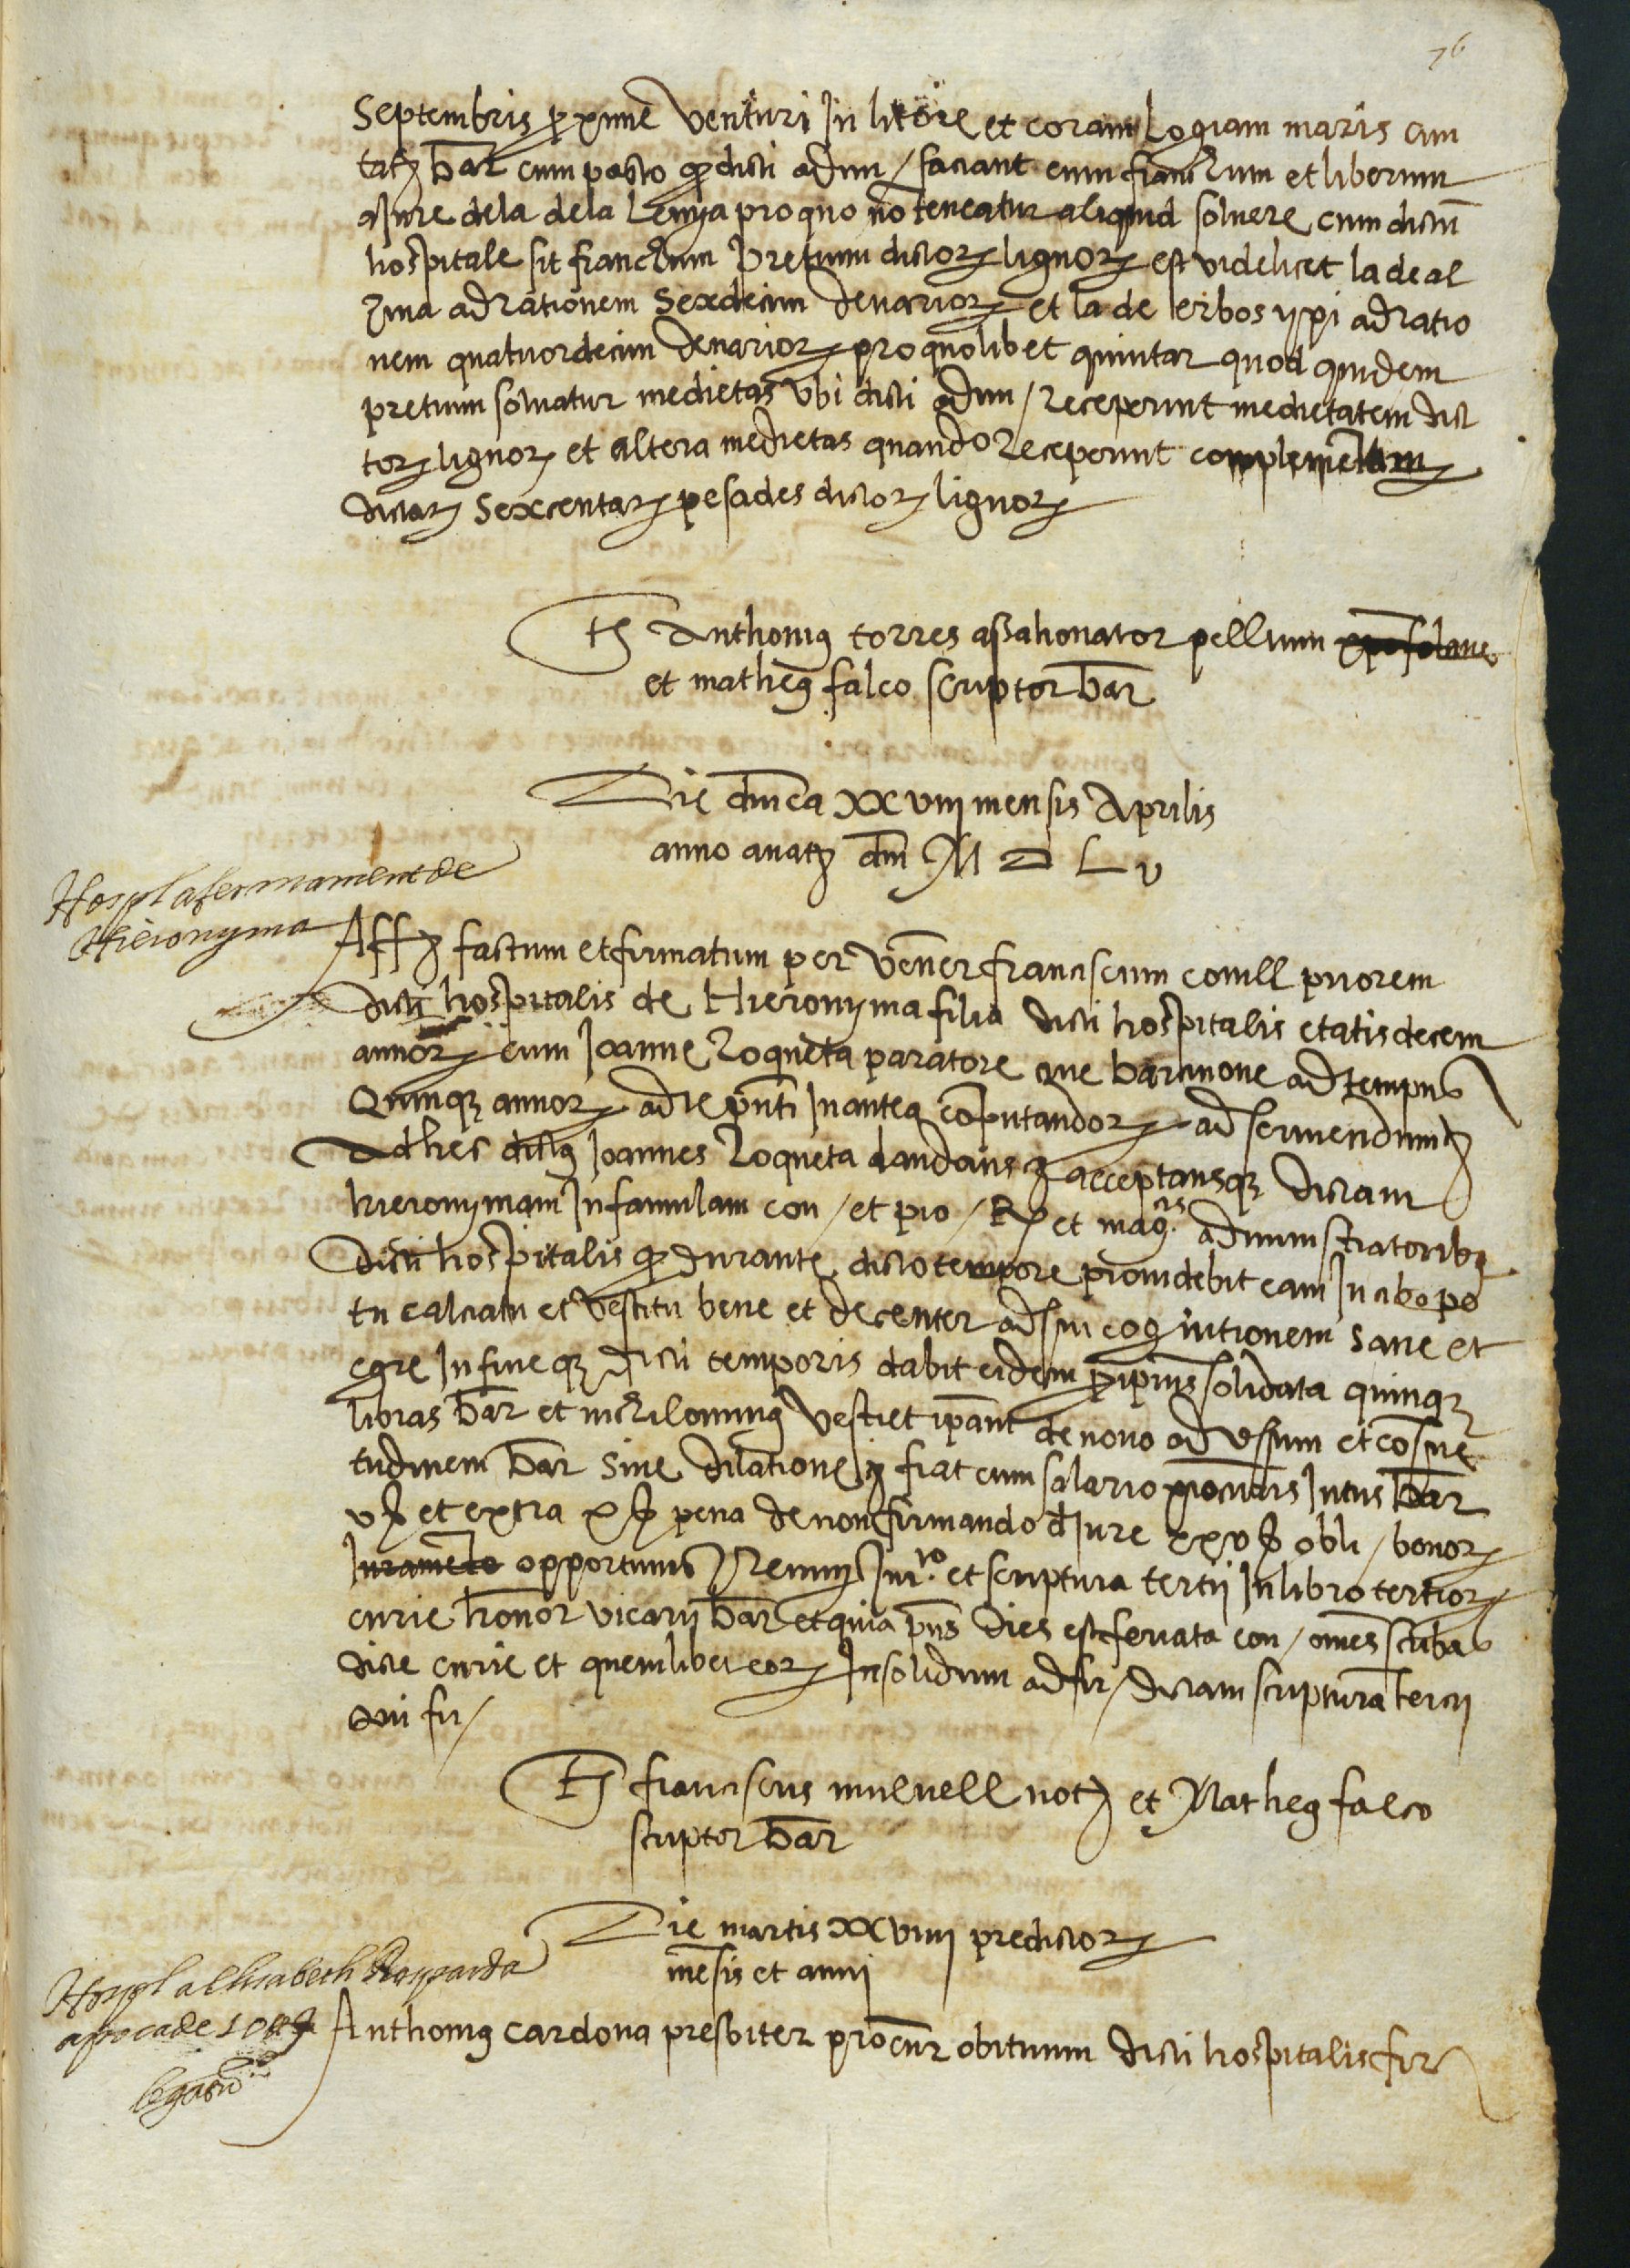 76
Septembris p xime venturi In litore et coram Logiam maris civi
tatis bar cum pacto q dicti admi / faciant eum franchum et liberum
a Jure dela dela Lenya pro quo no teneatur aliquid soluere cum dictu
hospitale sit franchum pretium dictor lignor est videlicet la de al
zina ad rationem sexdecim denarior et la de erbos y pi ad ratio
nem quatuordecim denarior pro quolibet quintar quod quidem
pretium soluatur medietas vbi dicti admi / receperint medietatem dic
tor lignor et altera medietas quando receperint complementum
dictar sexcentar pesades dictor lignor
ts Anthonius torres assahonator pellium
et matheus falco scriptor bar
Die dnica xx viij mensis Aprilis
anno a natz dni M D L v
Hospl afermament de
Hieronyma
Aff factum et firmatum per vener franciscum comll priorem
dicti hospitalis de Hieronyma filia dicti hospitalis etatis decem
annor cum Joanne Roqueta paratore cive barcinone ad tempus
Quinqz annor ad re pnti In antea coputandor ad seruiendum
Ad hec dictus Joannes Roqueta laudans acceptansqz dictam
hieronymam In famulam con / et pro / R et magcis administratoribs
dicti hospitalis q durante dicto tempore prouidebit eam In cibo po
tu calciatu et vestitu bene et decenter ad sui cognitionem sane et
egre In fineqz dicti temporis dabit eidem p ipius solidata quinqz
libras bar et nichilominus vestiet ipam de nouo ad vssum et cosue
tudinem bar sine dilatione fiat cum salario procuris Intus bar
v s et extra x s pena de non firmando d Jure xx v s obli / bonor
Juramento opportunis Renuns Jurto et scriptura tertii In libro tertior
curie honor vicarii bar et quia pns dies est feriata con / omes scribas
dicte curie et quemlibet eor Insolidum ad fir / dictam scriptura tercii
qui fir /
ts franciscus mulnell not et Matheus falco
scriptor bar
Die martis xx viiij predictor
mesis et anni
Hospl a Elisabeth
apoca de
legatu
Anthonius Cardona presbiter procur obituum dicti hospitalis fir